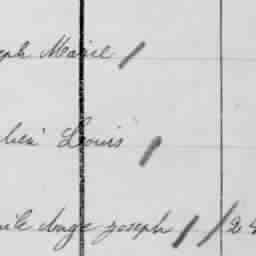 eph Marie /
lien Louis /
mile Ange joseph / / 2